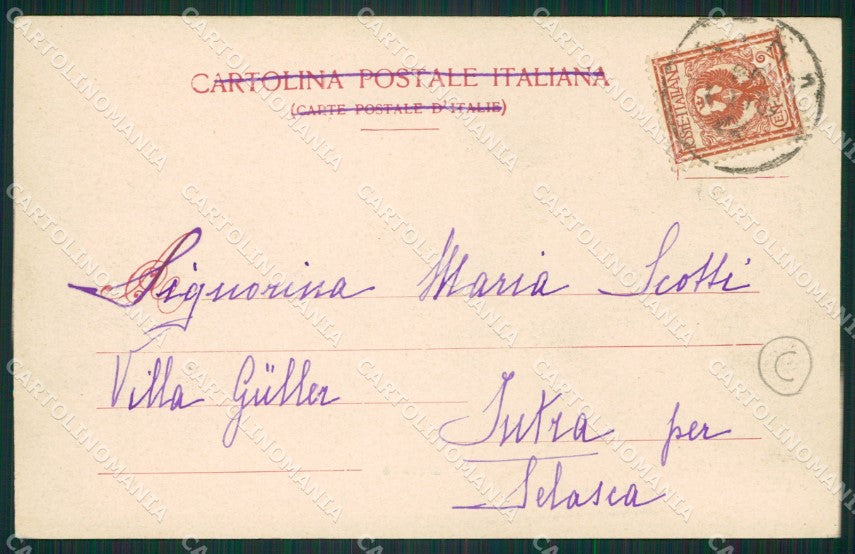 CARTOLINA POSTALE ITALIANA
(CARTE POSTALE D'ITALIE)
POSTE ITALIANE
CENT.
Signorina Maria Scotti
Villa Güller
Intra per
Selasca
C
CARTOLINOMANIA